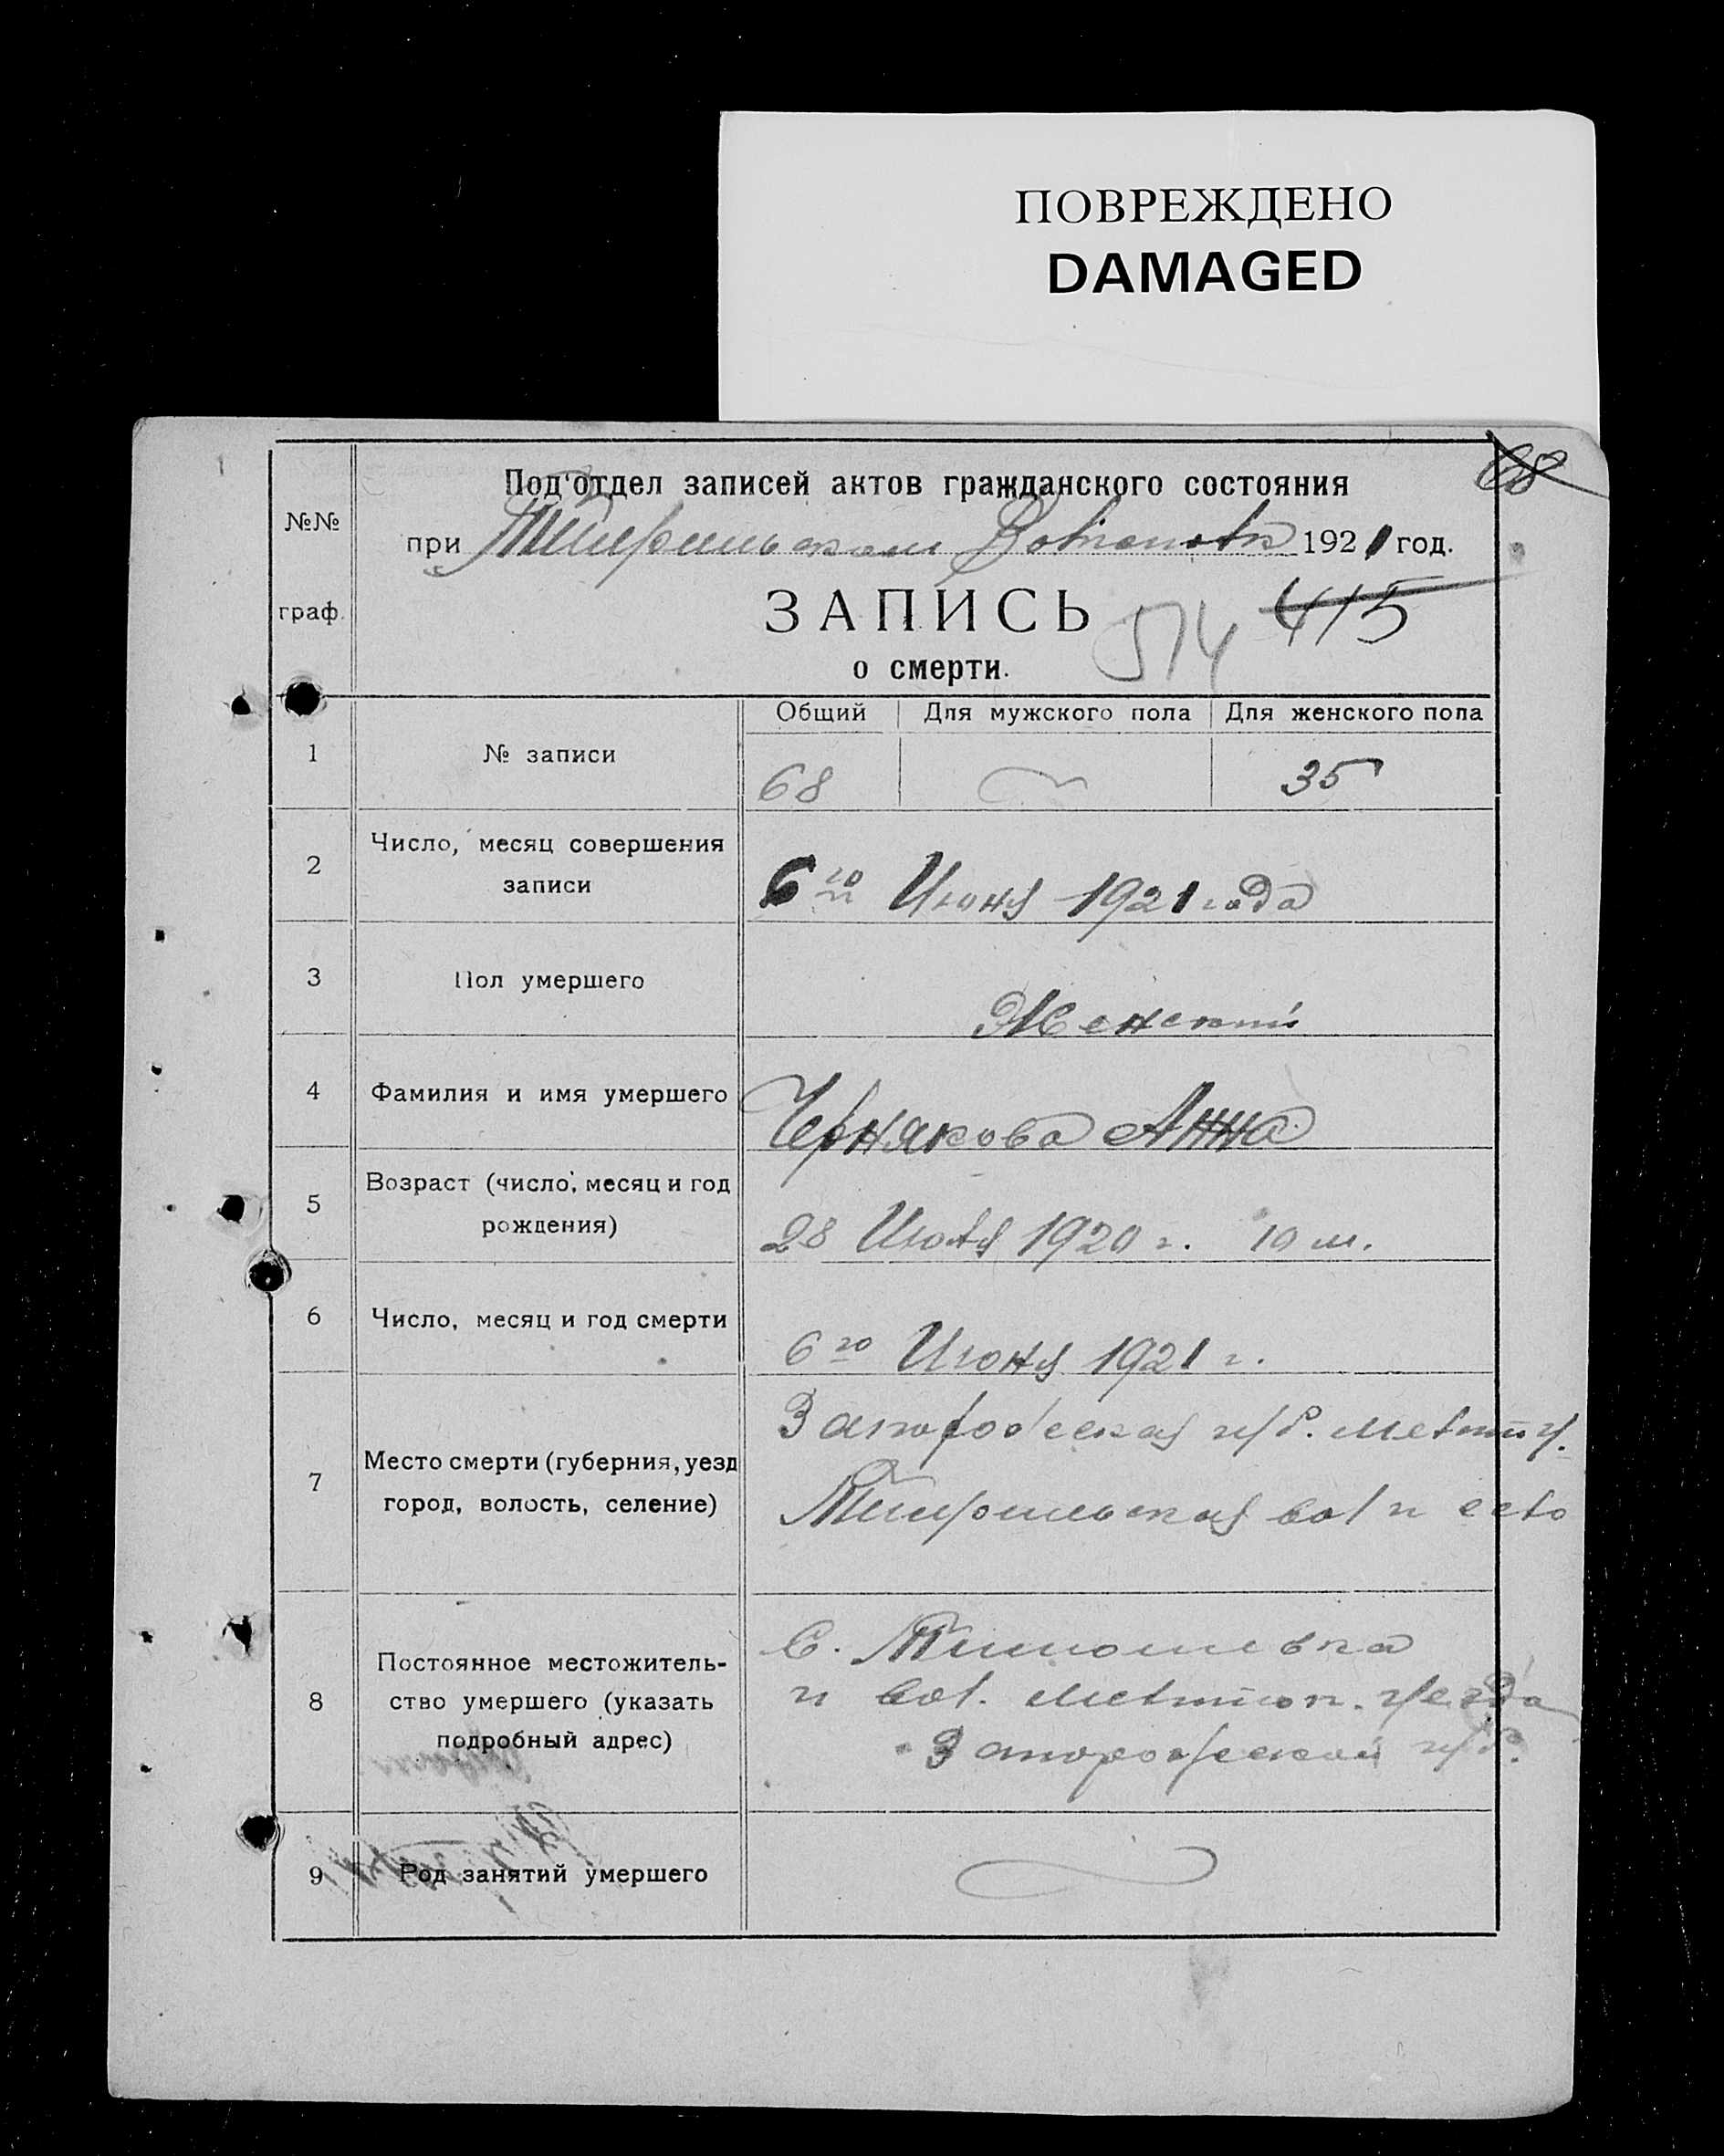 ПОВРЕЖДЕНО
DAMAGED
68
Под'отдел записей актов гражданского состояния
№№
при 1921 год.
граф.
ЗАПИСЬ
514 415
о смерти.
Общий Для мужского пола Для женского пола
1 № записи 68 35
2 Число, месяц совершения
записи
6го Июня 1921 года
3 Пол умершего Женский
4 Фамилия и имя умершего Чернякова Анна
5 Возраст (число, месяц и год
рождения)
28 Июля 1920 г. 10 м.
6 Число, месяц и год смерти 6го Июня 1921 г.
7 Место смерти (губерния, уезд
город, волость, селение)
Запорожская губ. Мелит у.
вол и село
8 Постоянное местожитель-
ство умершего (указать
подробный адрес)
С. Тимошевка
и вол. Мелитоп. уезда
Запорожской губ.
9 Род занятий умершего